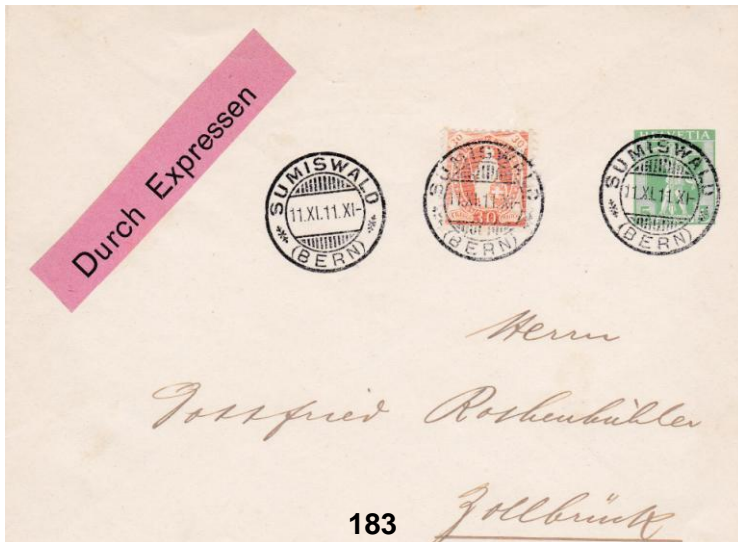 Durch Expressen
SUMISWALD
11.XI.11.XI-
(BERN)
SUMISWALD
11.XI.11.XI-
(BERN)
30
HELVETIA
SUMISWALD
11.XI.11.XI-
(BERN)
Herrn
Gottfried Rothenbühler
Zollbrück
183